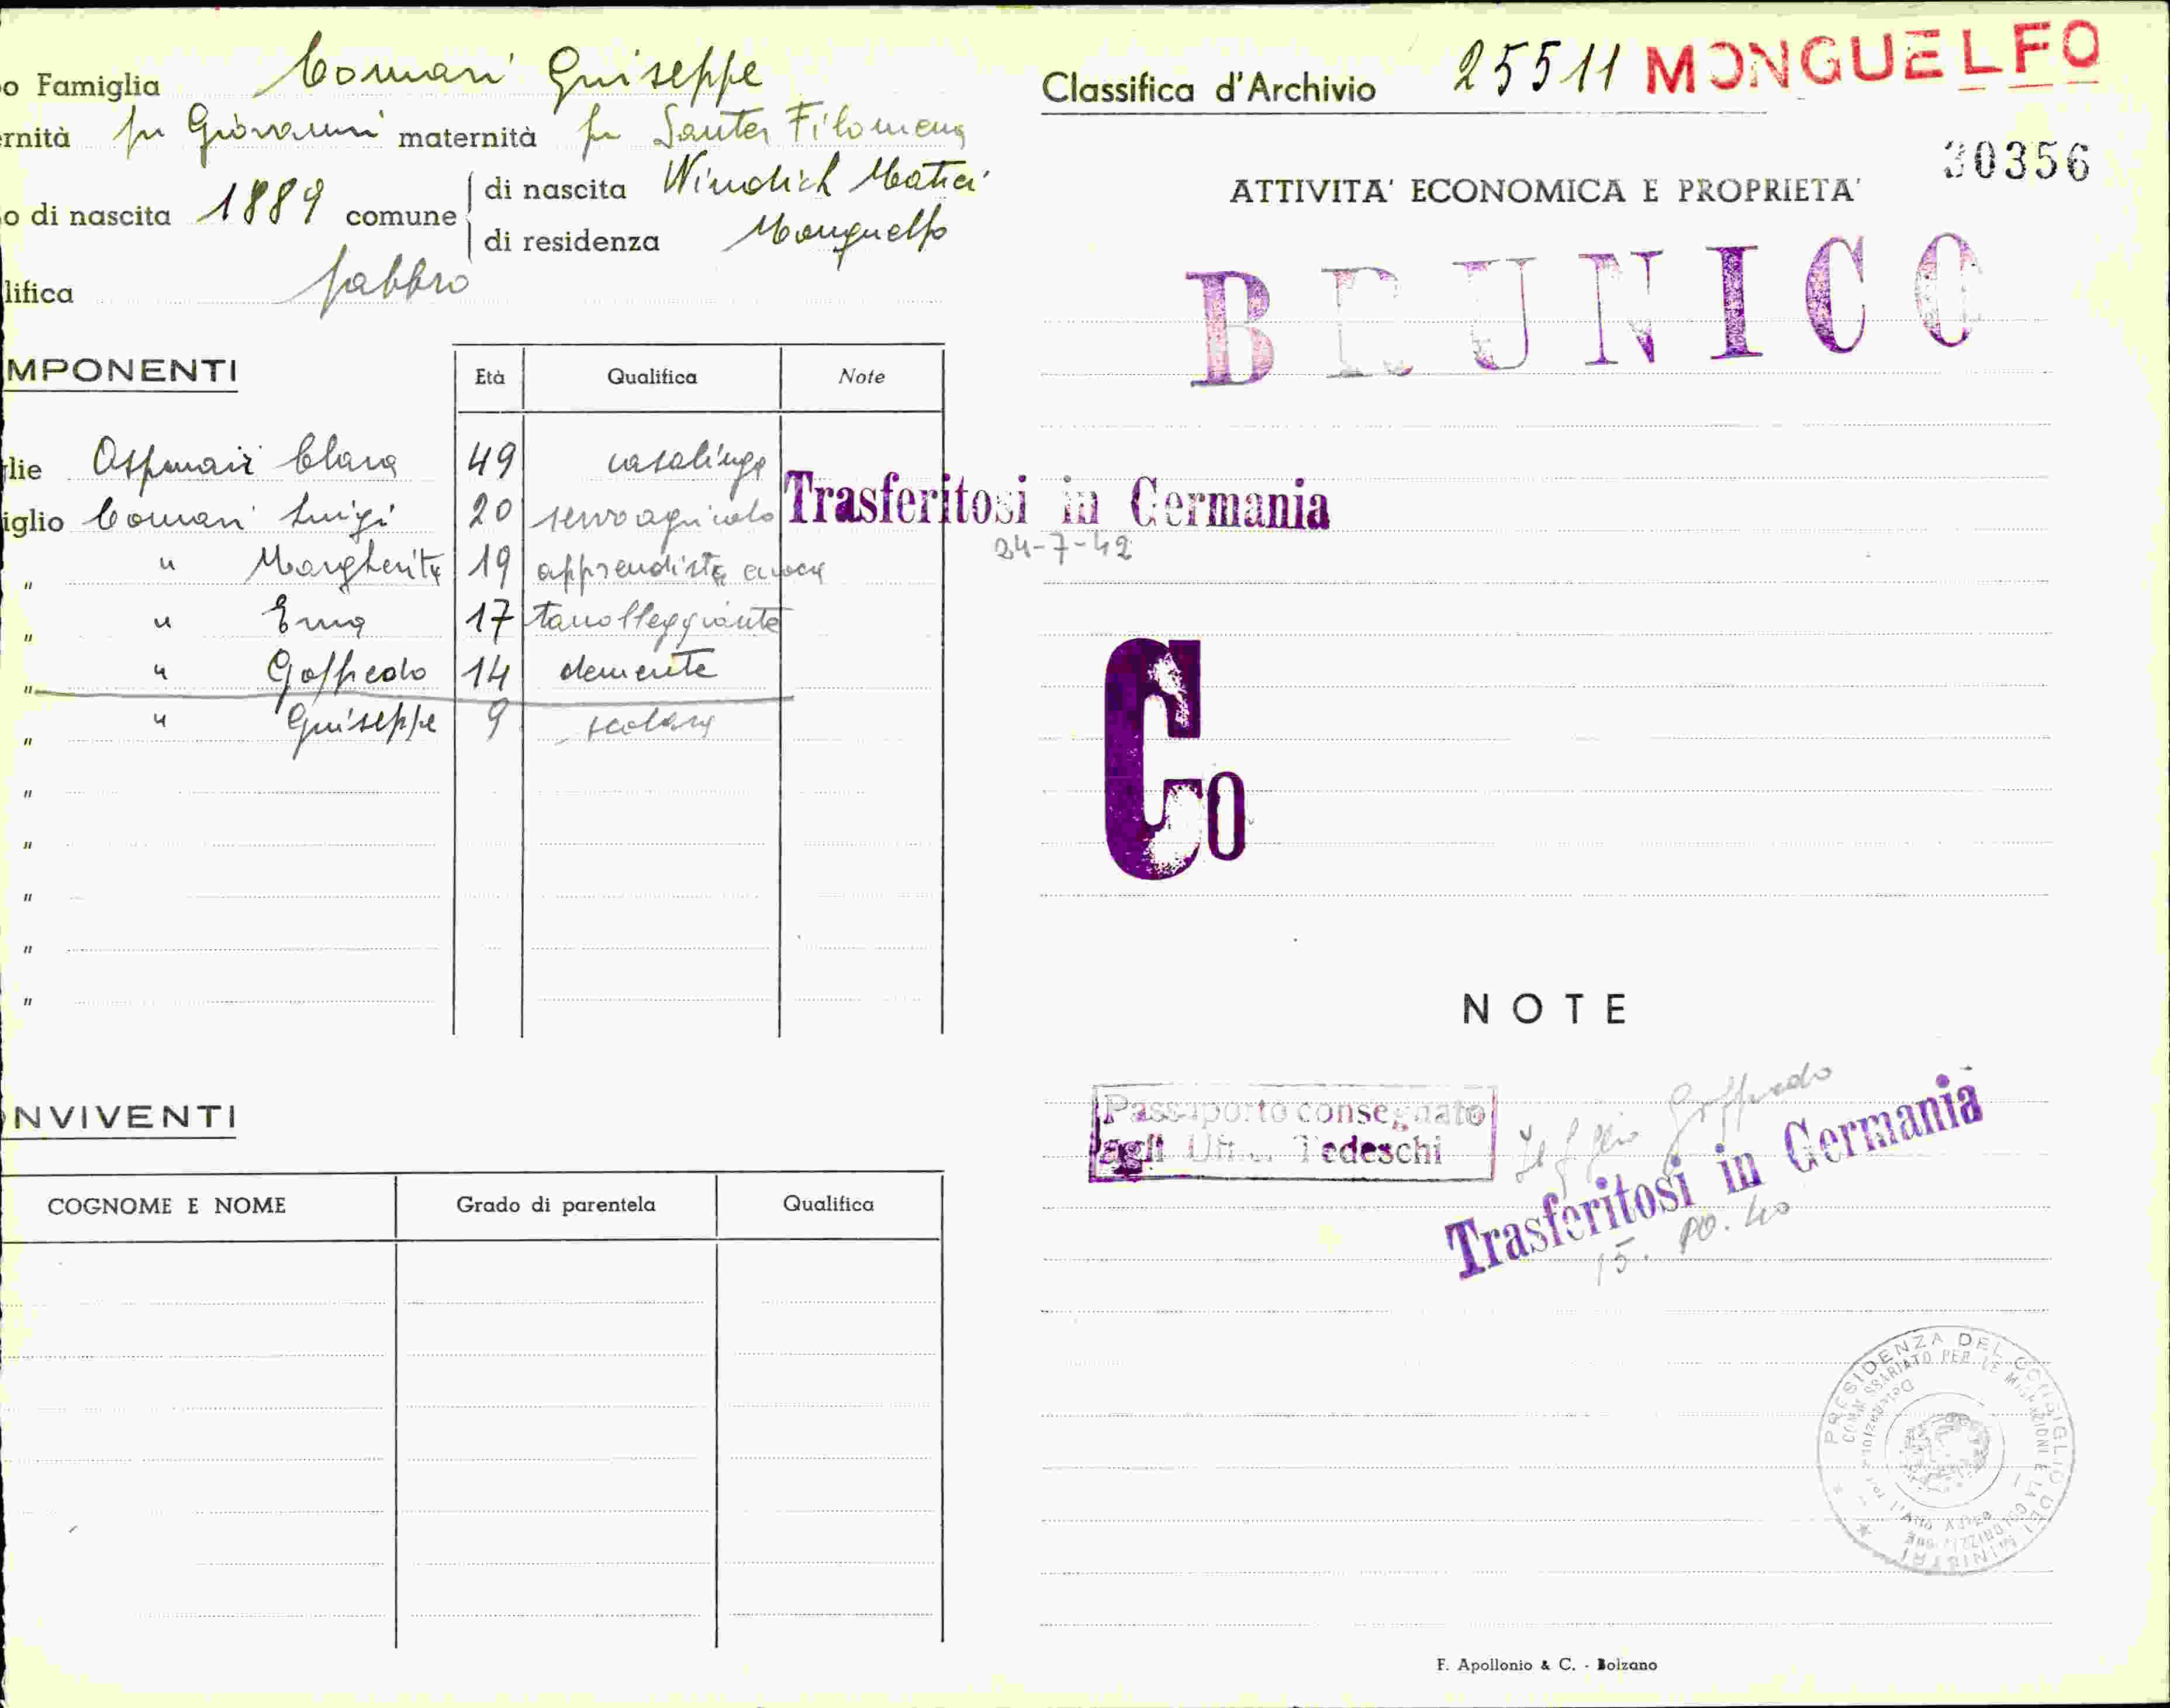 o Famiglia Comari Giuseppe
rnità fu Giovanni maternità fu Santer Filomena
o di nascita 1889 comune di nascita Windisch Matrei
di residenza Monguelfo
lifica fabbro
MPONENTI Età Qualifica Note
lie Clara 49 casalinga
iglio Comari Luigi 20 servo agricolo
" " Margherita 19 apprendista cuoca
" " Erna 17
" " Goffredo 14 demente
" " Giuseppe 9 scolaro
"
"
"
"
"
NVIVENTI
COGNOME E NOME Grado di parentela Qualifica
Classifica d'Archivio 25511 MONGUELFO
30356
ATTIVITA' ECONOMICA E PROPRIETA'
BRUNICO
Trasferitosi in Germania
24-7-42
Co
NOTE
Passaporto consegnato
agli Uff. Tedeschi
Il figlio Goffredo
Trasferitosi in Germania
15. 10. 40
PRESIDENZA DEL CONSIGLIO DEI MINISTRI
COMMISSARIATO PER LE MIGRAZIONI E LA COLONIZZAZIONE
Delegazione per l'Alto Adige
F. Apollonio & C. - Bolzano